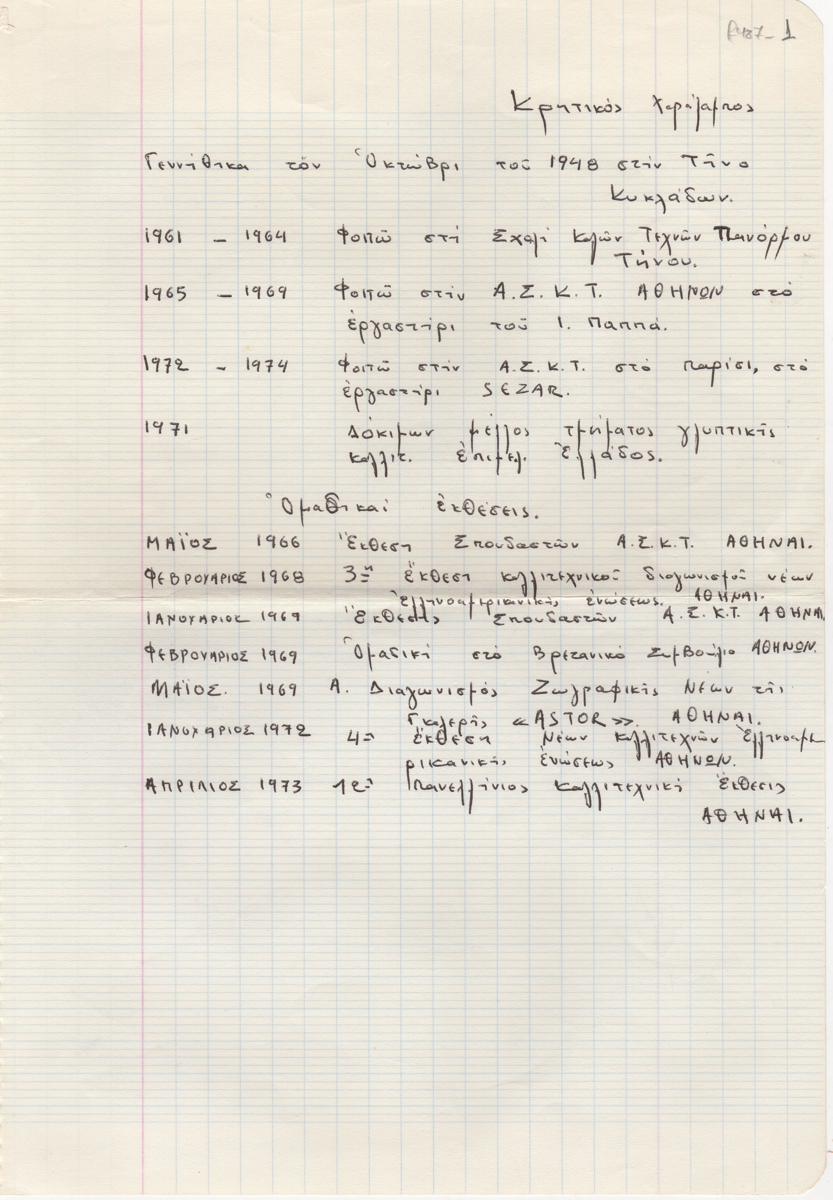 1
Κρητικός Χαράλαμπος
Γεννήθηκα τόν Ὀκτώβρι τοῦ 1948 στήν Τῆνο
Κυκλάδων.
1961 - 1964 Φοιτῶ στή Σχολή Καλῶν Τεχνῶν Πανόρμου
Τήνου.
1965 - 1969 Φοιτῶ στήν Α.Σ.Κ.Τ. ΑΘΗΝΩΝ στό
ἐργαστήρι τοῦ Ι. Παππά.
1972 - 1974 Φοιτῶ στήν Α.Σ.Κ.Τ. στό Παρίσι, στό
ἐργαστήρι SEZAR.
1971 Δόκιμων μέλλος τμήματος γλυπτικῆς
καλλιτ. ἐπιμελ. Ἑλλάδος.
Ὁμαθικαί ἐκθέσεις.
ΜΑΪΟΣ 1966 Ἔκθεση Σπουδαστῶν Α.Σ.Κ.Τ. ΑΘΗΝΑΙ.
ΦΕΒΡΟΥΑΡΙΟΣ 1968 3η ἐκθεση καλλιτεχνικοῦ διαγωνισμοῦ νέων
Ἑλληνοαμερικανικῆς ἑνώσεως. ΑΘΗΝΑΙ.
ΙΑΝΟΥΑΡΙΟΣ 1969 Ἔκθεσις Σπουδαστῶν Α.Σ.Κ.Τ. ΑΘΗΝΑΙ
ΦΕΒΡΟΥΑΡΙΟΣ 1969 Ὁμαδική στό Βρετανικό Συμβούλιο ΑΘΗΝΩΝ.
ΜΑΪΟΣ. 1969 Α. Διαγωνισμός Ζωγραφικῆς Νέων τῆς
Γκαλερῆς «ASTOR». ΑΘΗΝΑΙ.
ΙΑΝΟΥΑΡΙΟΣ 1972 4η ἐκθεση Νέων Καλλιτεχνῶν Ἑλληνοαμε
ρικανικῆς ἑνώσεως ΑΘΗΝΩΝ.
ΑΠΡΙΛΙΟΣ 1973 12η Πανελλήνιος Καλλιτεχνική ἔκθεσις
ΑΘΗΝΑΙ.